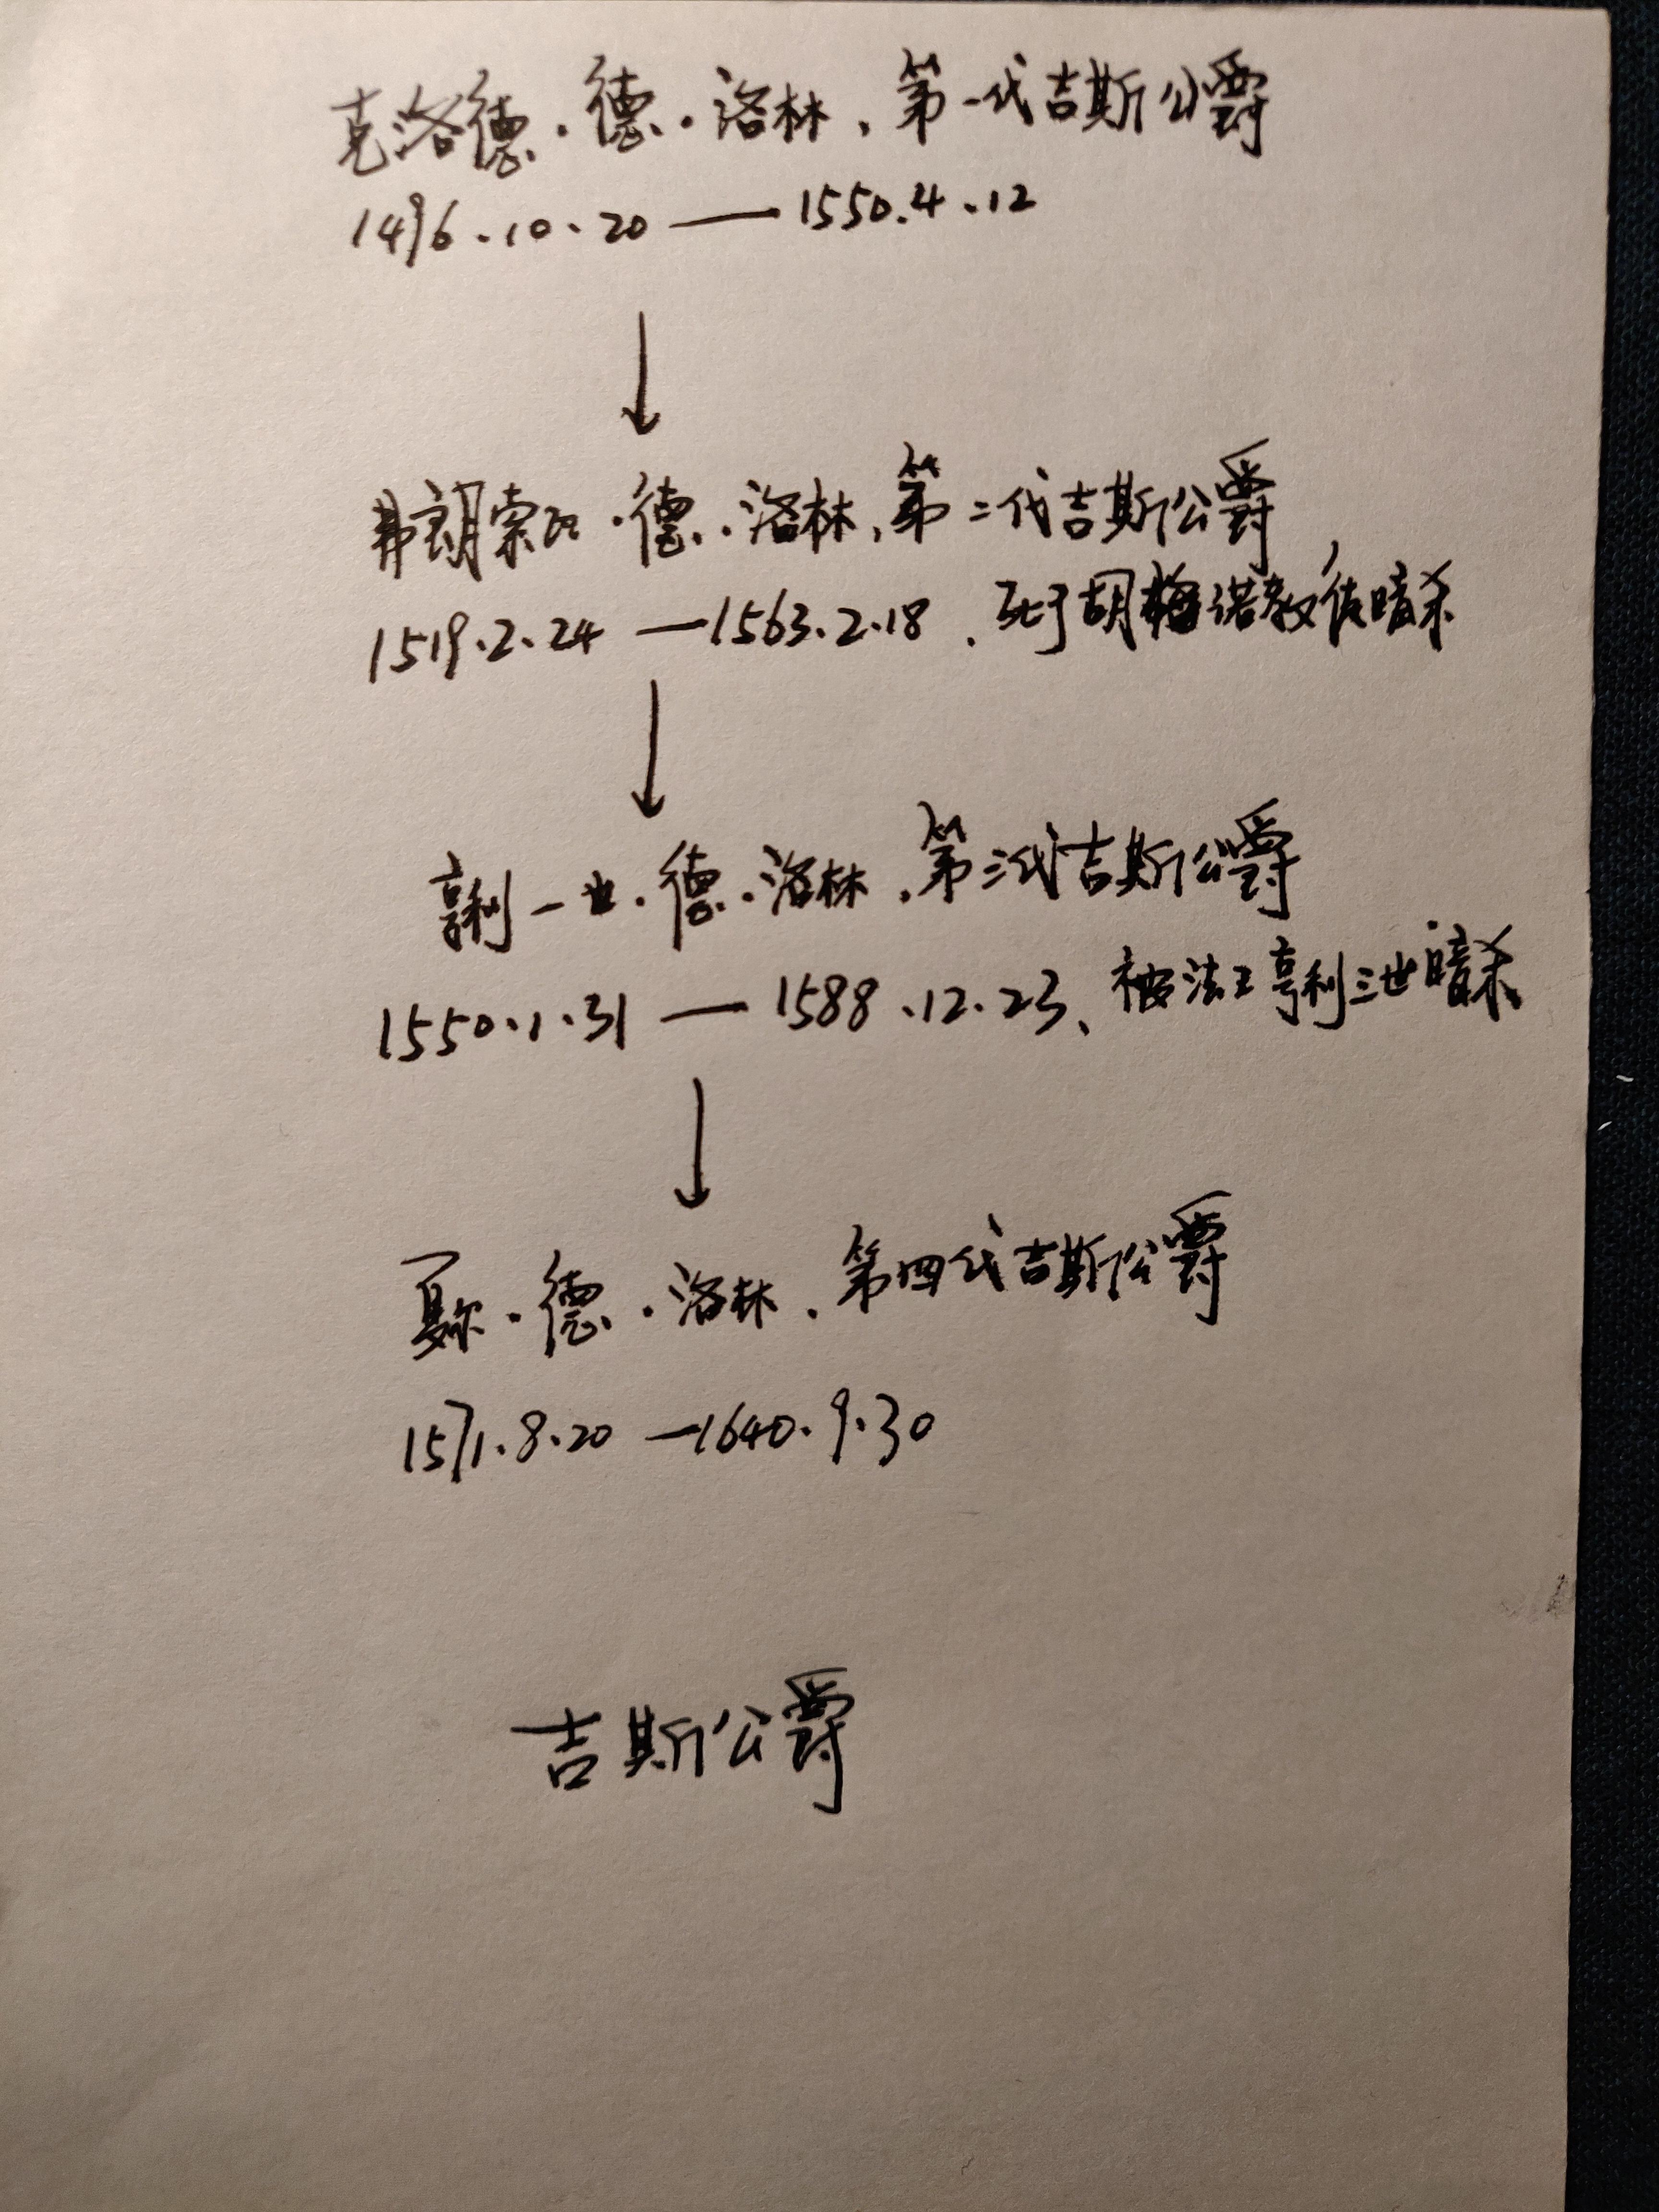 克洛德·德·洛林，第一代吉斯公爵
1496.10.20——1550.4.12
弗朗索瓦·德·洛林，第二代吉斯公爵
1519.2.24—1563.2.18，死于胡格诺教徒暗杀
亨利一世·德·洛林，第三代吉斯公爵
1550.1.31—1588.12.23、被法王亨利三世暗杀
夏尔·德·洛林，第四代吉斯公爵
1571.8.20—1640.9.30
吉斯公爵